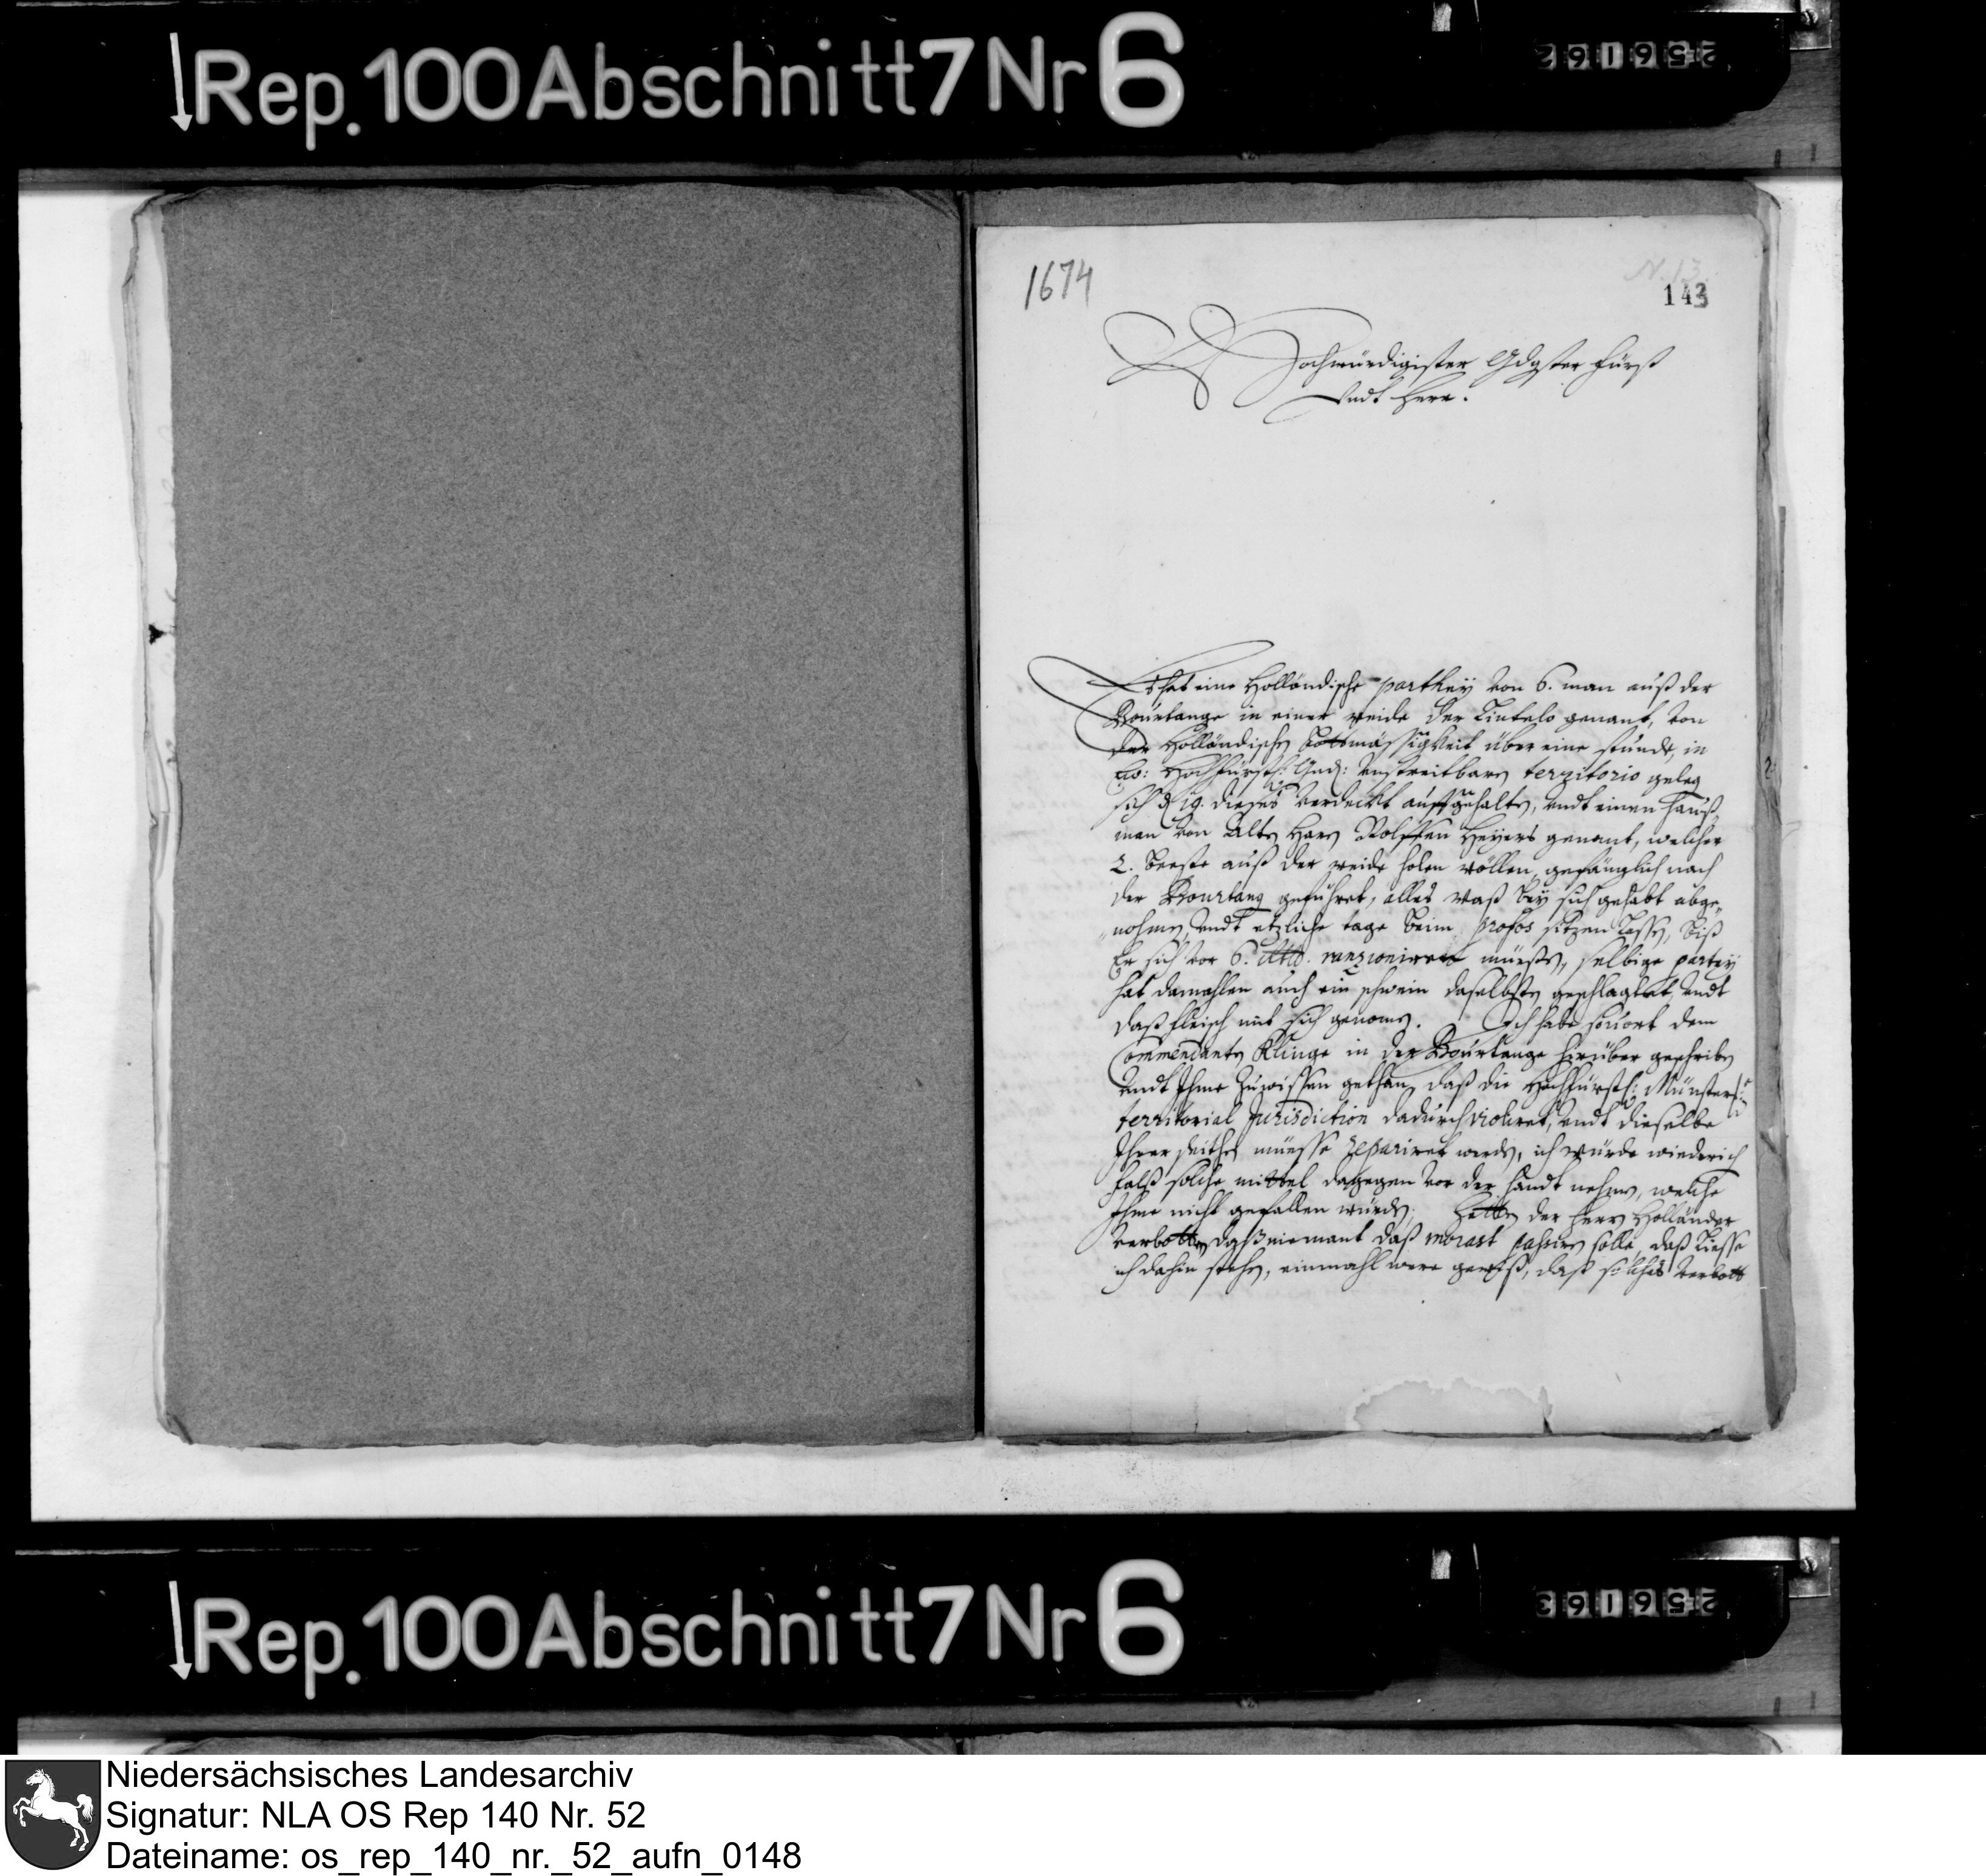 Rep. 100 Abschnitt 7 Nr 6
256162
1674
N. 13
143
Hochwürdigister Gdgster Fürst
Vndt Herr.
Es hat eine Holländische parthey von 6. man auß der
Bourtange in einer weide der Tintelo genant, von
der Holländischen bottmäßigkeit über eine stunde, in
Ew: Hochfürstl: Gnd: unstreitbaren territorio gelegen
sich d 19. dieses verdeckt auffgehalten, undt einen Hauß
man von Alten Haren Rolffen Heyers genant, welcher
2. beeste auß der weide holen wöllen, gefänglich nach
der Bourtang geführet, alles waß bey sich gehabt abge-
nohmen, undt etzliche tage beim profos sitzen lassen, biß
Er sich vor 6. ranzioniren müeßen, selbige partey
hat damahlen auch ein schwein daselbsten geschlagtet, undt
daß fleisch mit sich genomen. Ich habe sovort dem
Commendanten Klinge in der Bourtange hirüber geschriben
undt Ihme zuwissen gethan, daß die Hochfürstl: Münster:
territorial Jurisdiction dadurch violiret, undt dieselbe
Ihrer seithen müesse repariret werden, ich würde wiedrich
falß solche mittel dagegen vor der handt nehmen, welche
Ihme nicht gefallen würden. Hetten der Herren Holländer
verbotten daß niemant daß morast passiren solle, daß liesse
ich dahin stehen, einmahl were gewiß, daß solches verbott
Rep. 100 Abschnitt 7 Nr 6
256163
Niedersächsisches Landesarchiv
Signatur: NLA OS Rep 140 Nr. 52
Dateiname: os_rep_140_nr._52_aufn_0148